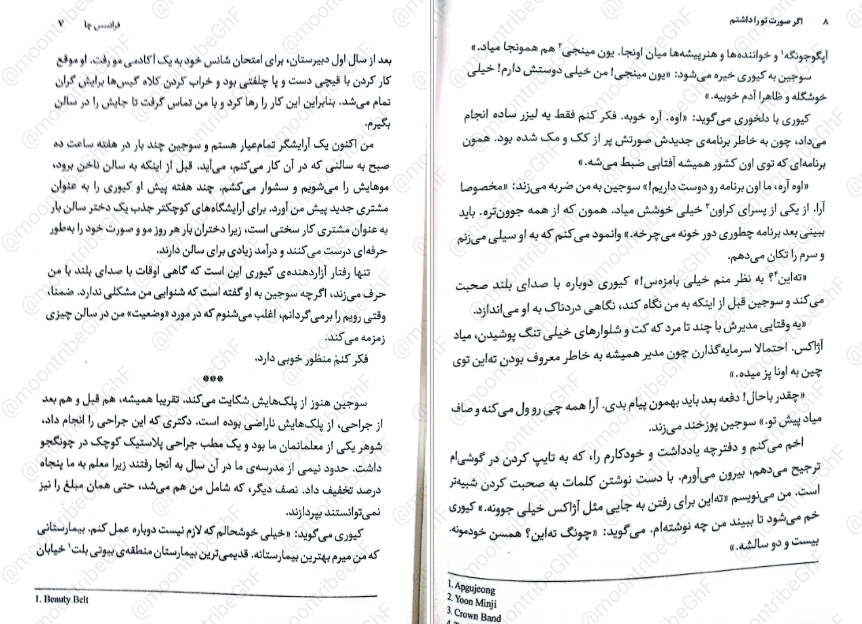 فرانسس چا ۷
بعد از سال اول دبیرستان، برای امتحان شانس خود به یک آکادمی مو رفت. او موقع
کار کردن با قیچی دست و پا چلفتی بود و خراب کردن کلاه گیس‌ها برایش گران
تمام می‌شد. بنابراین این کار را رها کرد و با من تماس گرفت تا جایش را در سالن
بگیرم.
من اکنون یک آرایشگر تمام‌عیار هستم و سوجین چند بار در هفته ساعت ده
صبح به سالنی که در آن کار می‌کنم، می‌آید. قبل از اینکه به سالن ناخن برود،
موهایش را می‌شویم و سشوار می‌کشم. چند هفته پیش او کیوری را به عنوان
مشتری جدید پیش من آورد. برای آرایشگاه‌های کوچکتر جذب یک دختر سالن بار
به عنوان مشتری کار سختی است، زیرا دختران بار هر روز مو و صورت خود را به‌طور
حرفه‌ای درست می‌کنند و درآمد زیادی برای سالن دارند.
تنها رفتار آزاردهنده‌ی کیوری این است که گاهی اوقات با صدای بلند با من
حرف می‌زند، اگرچه سوجین به او گفته است که شنوایی من مشکلی ندارد. ضمنا،
وقتی رویم را برمی‌گردانم، اغلب می‌شنوم که در مورد «وضعیت» من در سالن چیزی
زمزمه می‌کند.
فکر کنم منظور خوبی دارد.
***
سوجین هنوز از پلک‌هایش شکایت می‌کند. تقریبا همیشه، هم قبل و هم بعد
از جراحی، از پلک‌هایش ناراضی بوده است. دکتری که این جراحی را انجام داد،
شوهر یکی از معلمانمان ما بود و یک مطب جراحی پلاستیک کوچک در چونگجو
داشت. حدود نیمی از مدرسه‌ی ما در آن سال به آنجا رفتند زیرا معلم به ما پنجاه
درصد تخفیف داد. نصف دیگر، که شامل من هم می‌شد، حتی همان مبلغ را نیز
نمی‌توانستند بپردازند.
کیوری می‌گوید: «خیلی خوشحالم که لازم نیست دوباره عمل کنم. بیمارستانی
که من میرم بهترین بیمارستانه. قدیمی‌ترین بیمارستان منطقه‌ی بیوتی بلت۱ خیابان
1. Beauty Belt
۸ اگر صورت تو را داشتم
آپگوجونگه۱ و خواننده‌ها و هنرپیشه‌ها میان اونجا. یون مینجی۲ هم همونجا میاد.»
سوجین به کیوری خیره می‌شود: «یون مینجی! من خیلی دوستش دارم! خیلی
خوشگله و ظاهرا آدم خوبیه.»
کیوری با دلخوری می‌گوید: «اوه. آره خوبه. فکر کنم فقط یه لیزر ساده انجام
می‌داد، چون به خاطر برنامه‌ی جدیدش صورتش پر از کک و مک شده بود. همون
برنامه‌ای که توی اون کشور همیشه آفتابی ضبط می‌شه.»
«اوه آره، ما اون برنامه رو دوست داریم!» سوجین به من ضربه می‌زند: «مخصوصا
آرا. از یکی از پسرای کراون۳ خیلی خوشش میاد. همون که از همه جوون‌تره. باید
ببینی بعد برنامه چطوری دور خونه می‌چرخه.» وانمود می‌کنم که به او سیلی می‌زنم
و سرم را تکان می‌دهم.
«ته‌این۴؟ به نظر منم خیلی بامزه‌س!» کیوری دوباره با صدای بلند صحبت
می‌کند و سوجین قبل از اینکه به من نگاه کند، نگاهی دردناک به او می‌اندازد.
«یه وقتایی مدیرش با چند تا مرد که کت و شلوارهای خیلی تنگ پوشیدن، میاد
آژاکس. احتمالا سرمایه‌گذارن چون مدیر همیشه به خاطر معروف بودن ته‌این توی
چین به اونا پز میده.»
«چقدر باحال! دفعه بعد باید بهمون پیام بدی. آرا همه چی رو ول می‌کنه و صاف
میاد پیش تو.» سوجین پوزخند می‌زند.
اخم می‌کنم و دفترچه یادداشت و خودکارم را، که به تایپ کردن در گوشی‌ام
ترجیح می‌دهم، بیرون می‌آورم. با دست نوشتن کلمات به صحبت کردن شبیه‌تر
است. من می‌نویسم «ته‌این برای رفتن به جایی مثل آژاکس خیلی جوونه.» کیوری
خم می‌شود تا ببیند من چه نوشته‌ام. می‌گوید: «چونگ ته‌این؟ همسن خودمونه.
بیست و دو سالشه.»
1. Apgujeong
2. Yoon Minji
3. Crown Band
@moontribeGhF